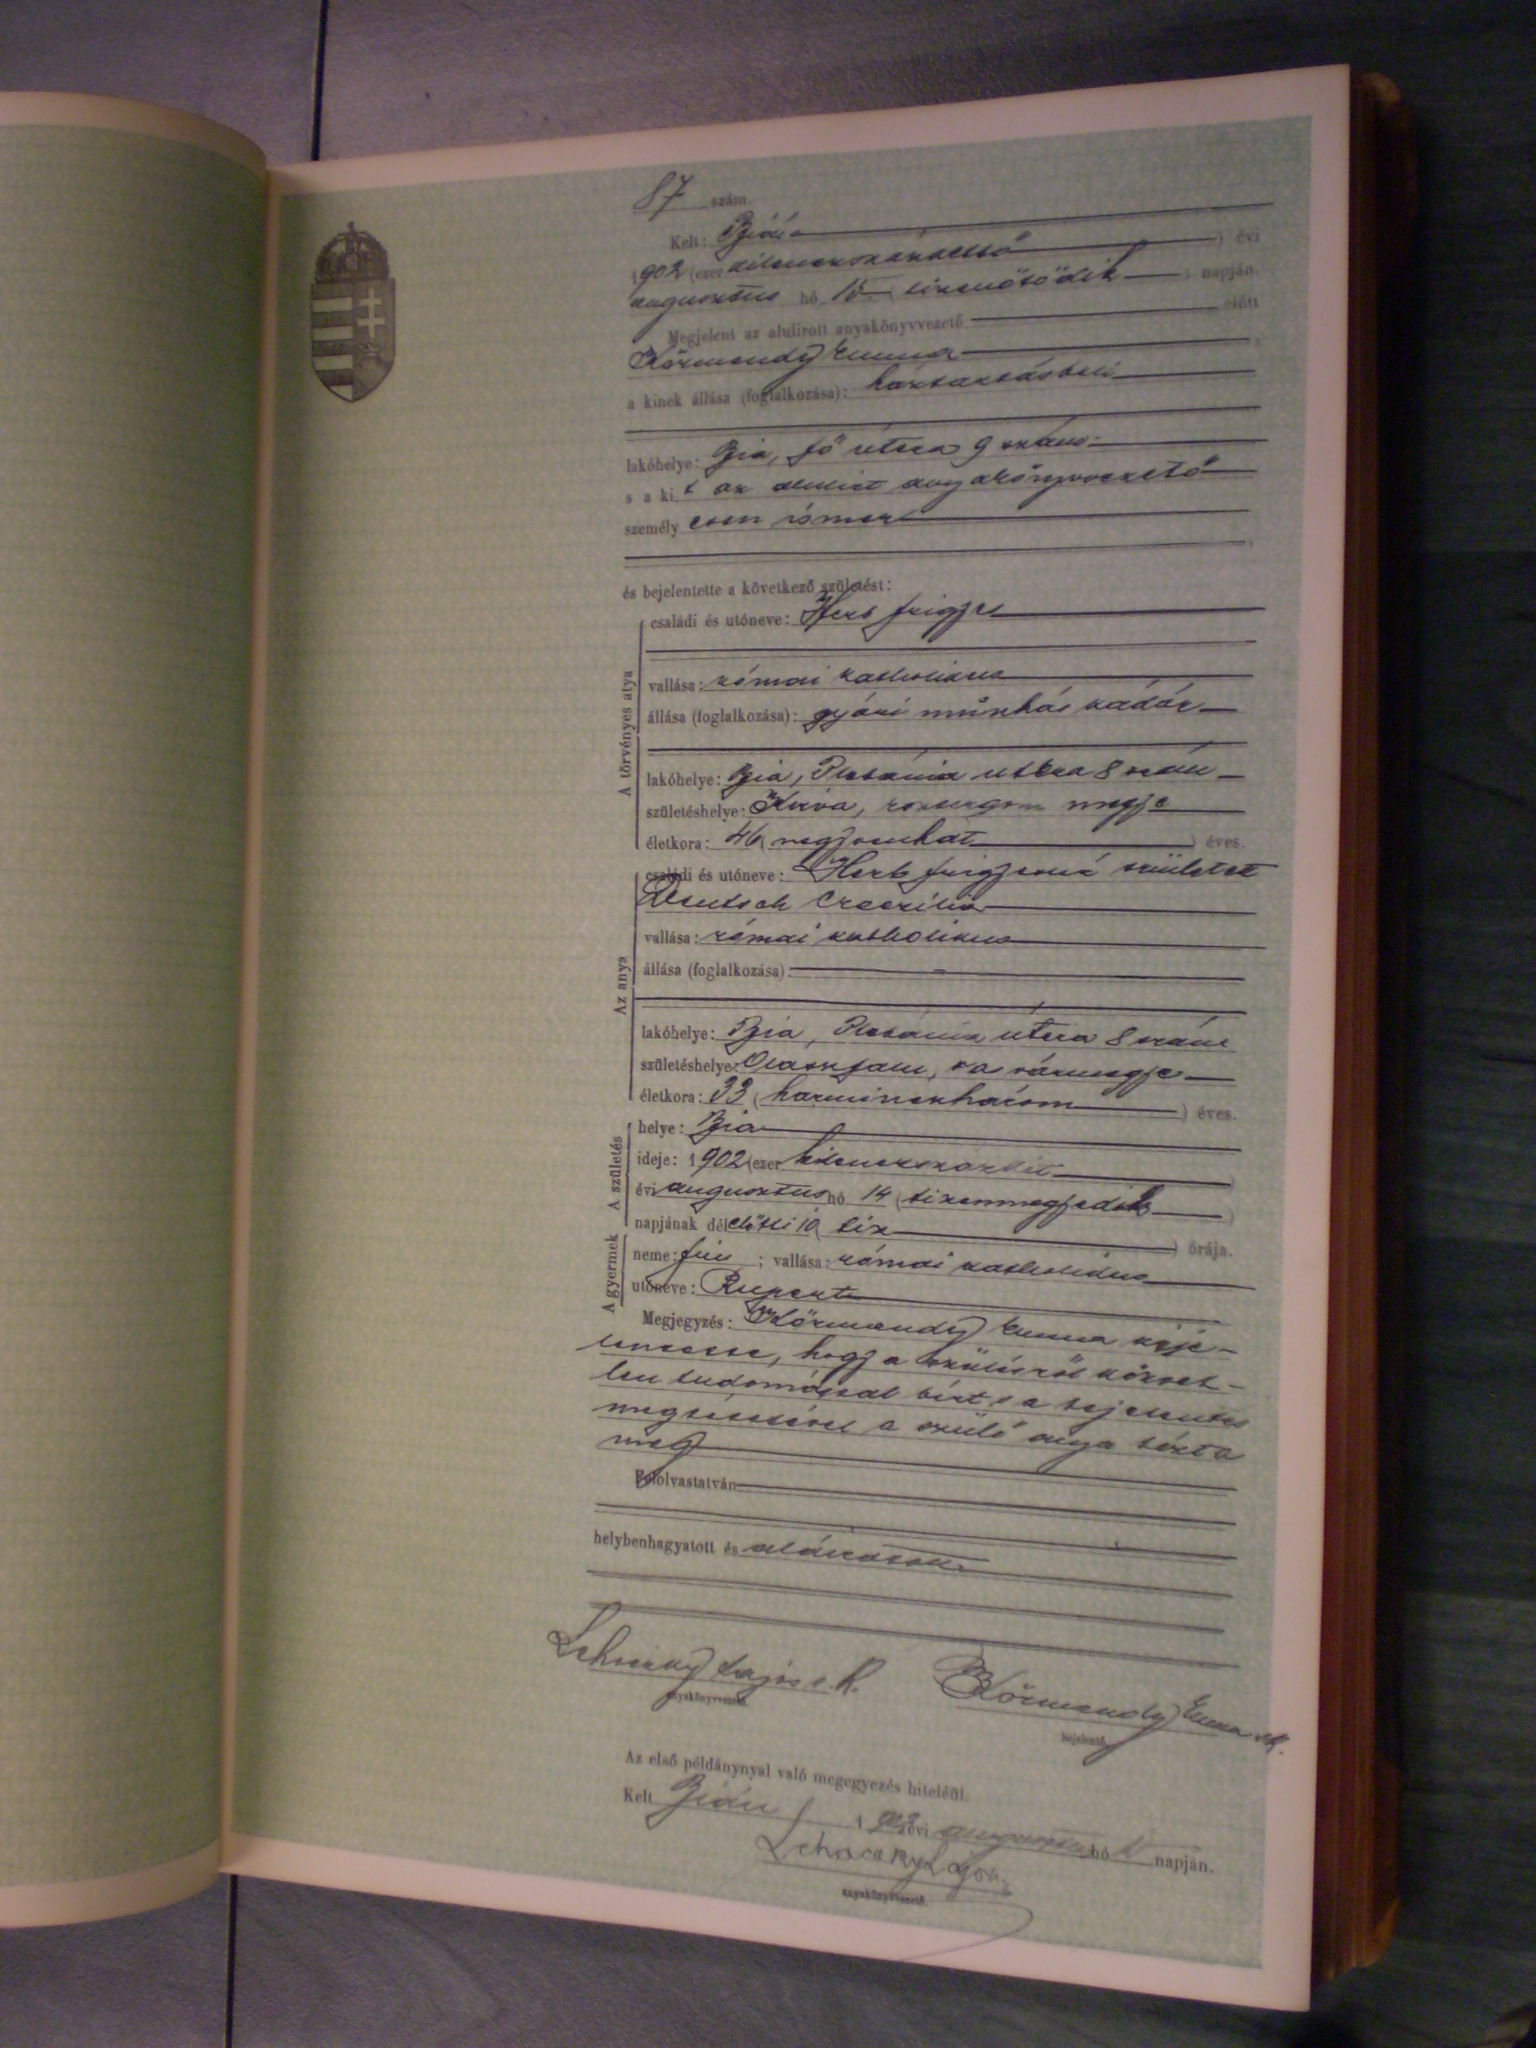 87 szám.
Kelt: Bián
1902 (ezer kilencszáz
augusztus hó 15 tizenötödik ) napján.
Megjelent az alulirott anyakönyvvezető előtt
Körmendy Emma
a kinek állása (foglalkozása): háztartásbeli
lakóhelye: Bia, fő útcza 9 szám
s a kit az alulirt anyakönyvvezető
személyesen ismer
és bejelentette a következő születést:
A törvényes atya
családi és utóneve: Herb Frigyes
vallása: római katholikus
állása (foglalkozása): gyári munkás kádár
lakóhelye: Bia, Platánia utcza 8 szám
születéshelye: Kirva, esztergom megye
életkora: 46 ( negyvenhat ) éves.
Az anya
családi és utóneve: Herb Frigyesné született
Deutsch Czeczilia
vallása: római katholikus
állása (foglalkozása):
lakóhelye: Bia, Platánia útcza 8 szám
születéshelye: Olaszfalu, vas vármegye
életkora: 33 ( harminczhárom ) éves.
A születés
helye: Bia
ideje: 1902 (ezer kilenczszázkét )
évi augusztus hó 14 ( tizennegyedik )
napjának délelőtti 10 ( tiz ) órája.
A gyermek
neme: fiu ; vallása: római katholikus
utóneve: Rupert
Megjegyzés: Körmendy Emma kije-
lentette, hogy a szülésről közvet-
len tudomással bírt s a bejelentés
megtételével a szülő anya bízta
meg
Felolvastatván
helybenhagyatott és aláiratott.
Lehoczky Lajos s. k.
anyakönyvvezető.
Körmendy Emma s.k.
bejelentő.
Az első példánynyal való megegyezés hiteléül.
Kelt Bián 1902 évi augusztus hó napján.
Lehoczky Lajos
anyakönyvvezető.